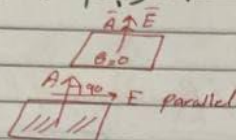 Ā Ē
θ=0
A 90 E parallel